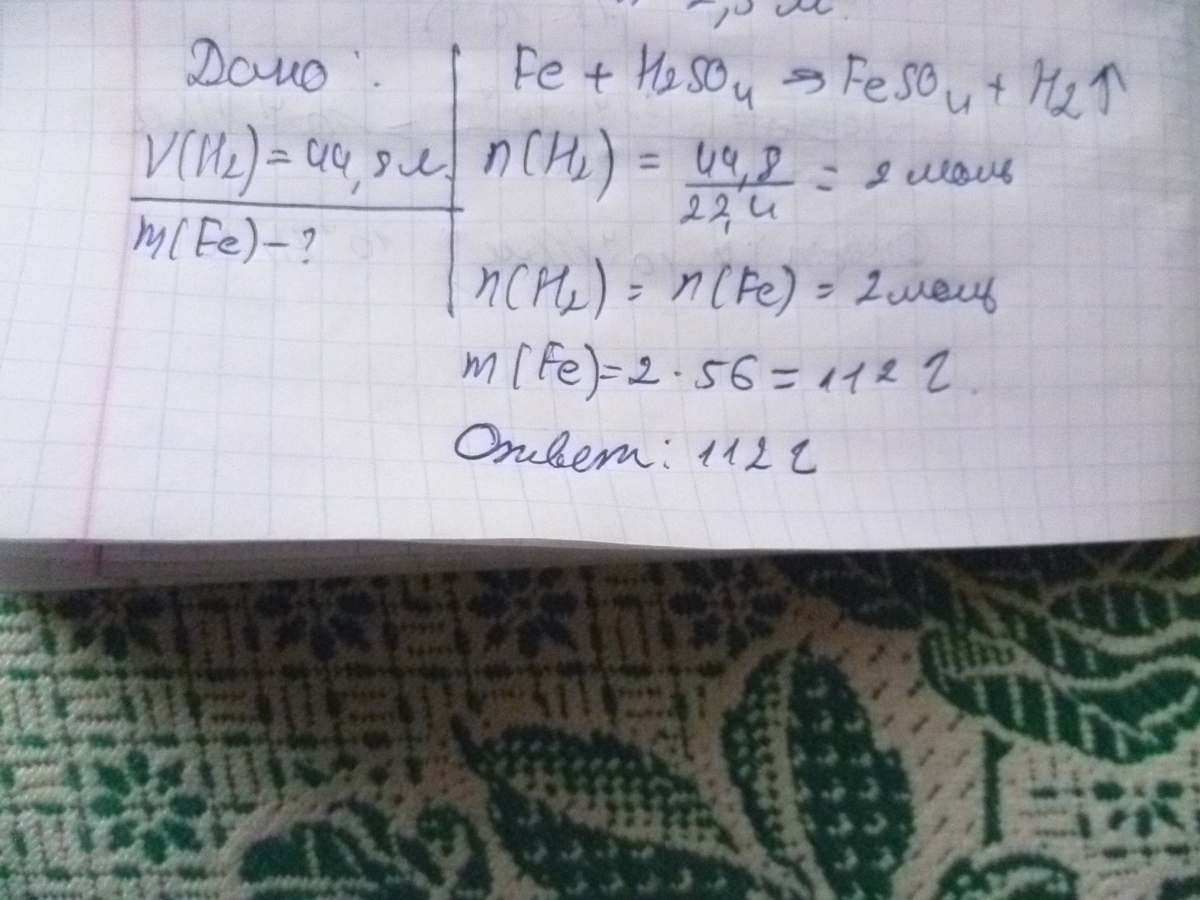 Дано:
V(H2) = 44,8 л.
m(Fe) - ?
Fe + H2SO4 → FeSO4 + H2↑
n(H2) = 44,8 / 22,4 = 2 моль
n(H2) = n(Fe) = 2 моль
m(Fe) = 2 · 56 = 112 г.
Ответ: 112 г